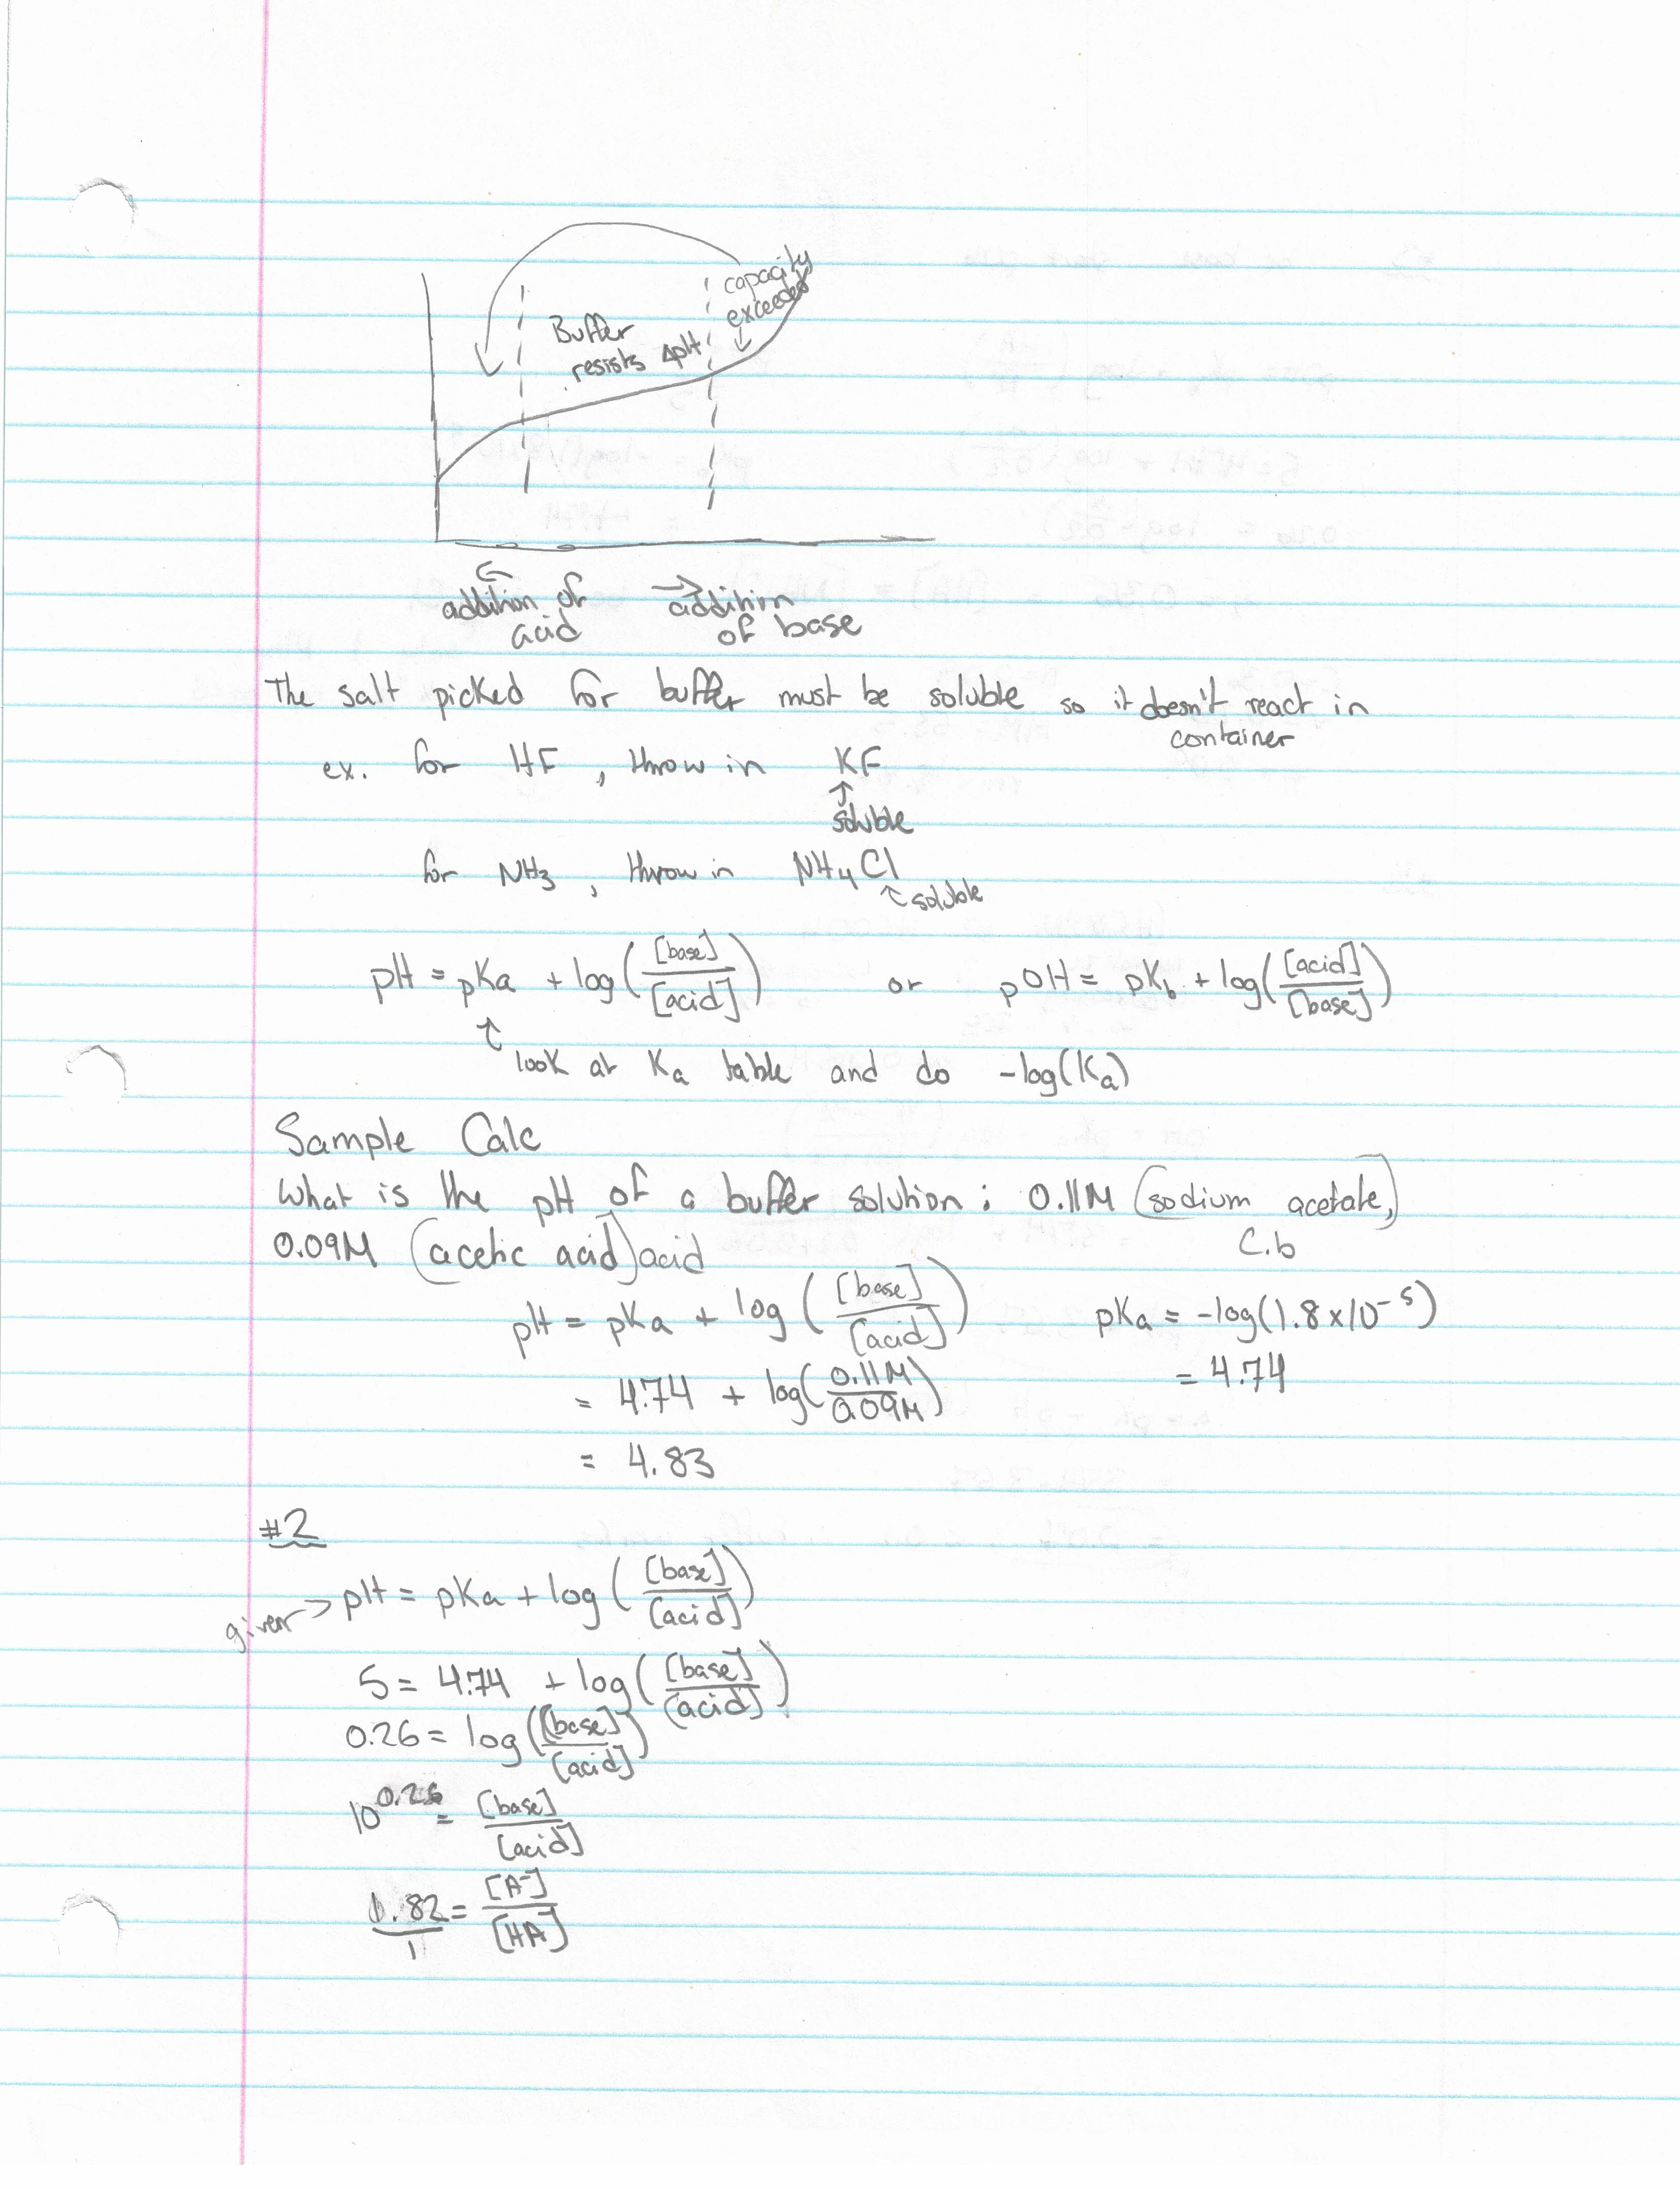 capacity
exceeded
Buffer
resists ΔpH
↓
← addition of
acid
→ addition
of base
The salt picked for buffer must be soluble so it doesn't react in
container
ex. for HF, throw in KF
↑
soluble
for NH3, throw in NH4Cl
↑ soluble
pH = pKa + log([base]/[acid]) or pOH = pKb + log([acid]/[base])
↑
look at Ka table and do -log(Ka)
Sample Calc
What is the pH of a buffer solution; 0.11M (sodium acetate,)
C.b
0.09M (acetic acid) acid
pH = pKa + log([base]/[acid]) pKa = -log(1.8x10^-5)
= 4.74 + log(0.11M/0.09M) = 4.74
= 4.83
#2
given → pH = pKa + log([base]/[acid])
5 = 4.74 + log([base]/[acid])
0.26 = log([base]/[acid])
10^0.26 = [base]/[acid]
1.82/1 = [A-]/[HA]